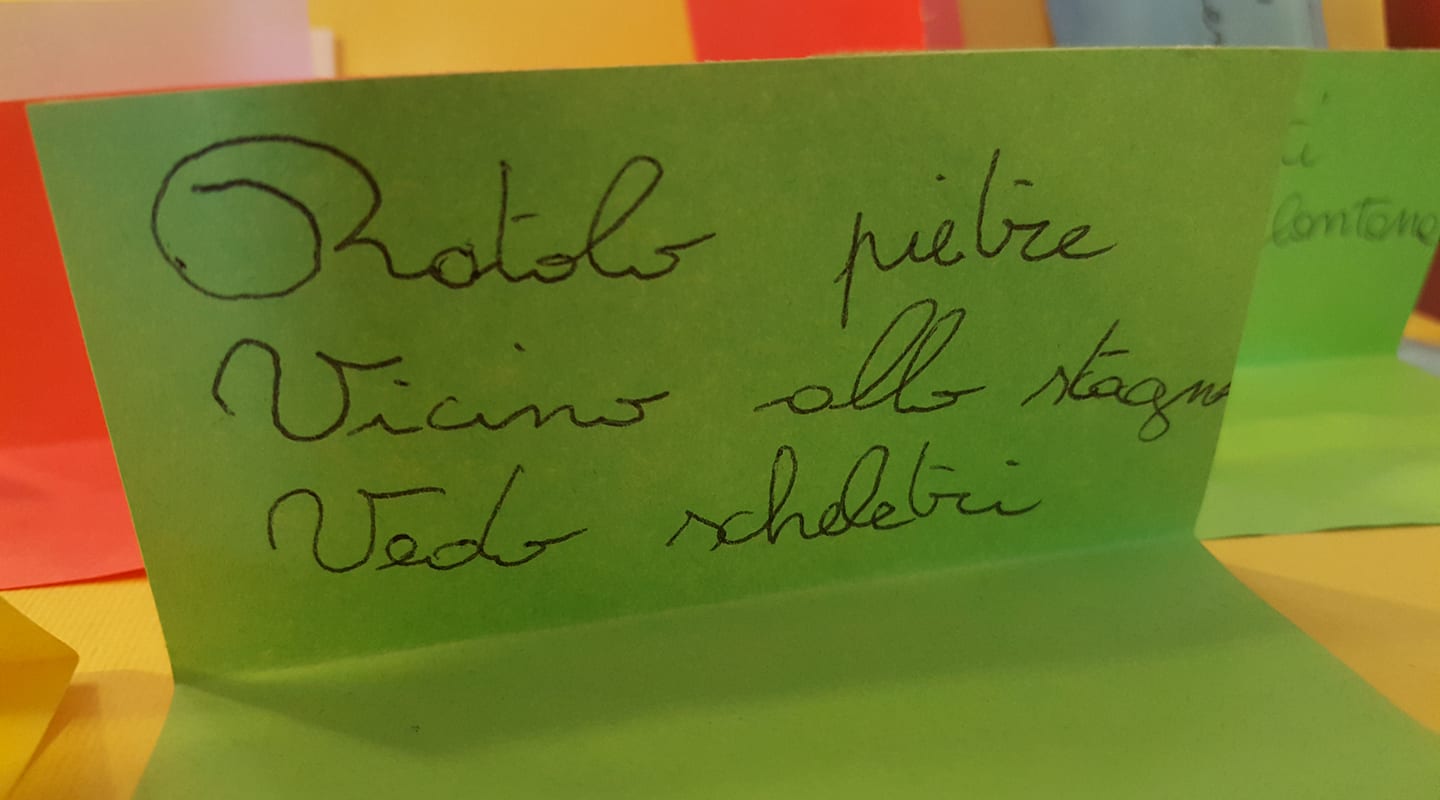 Rotolo pietre
Vicino allo stagno
Vedo scheletri
lontano